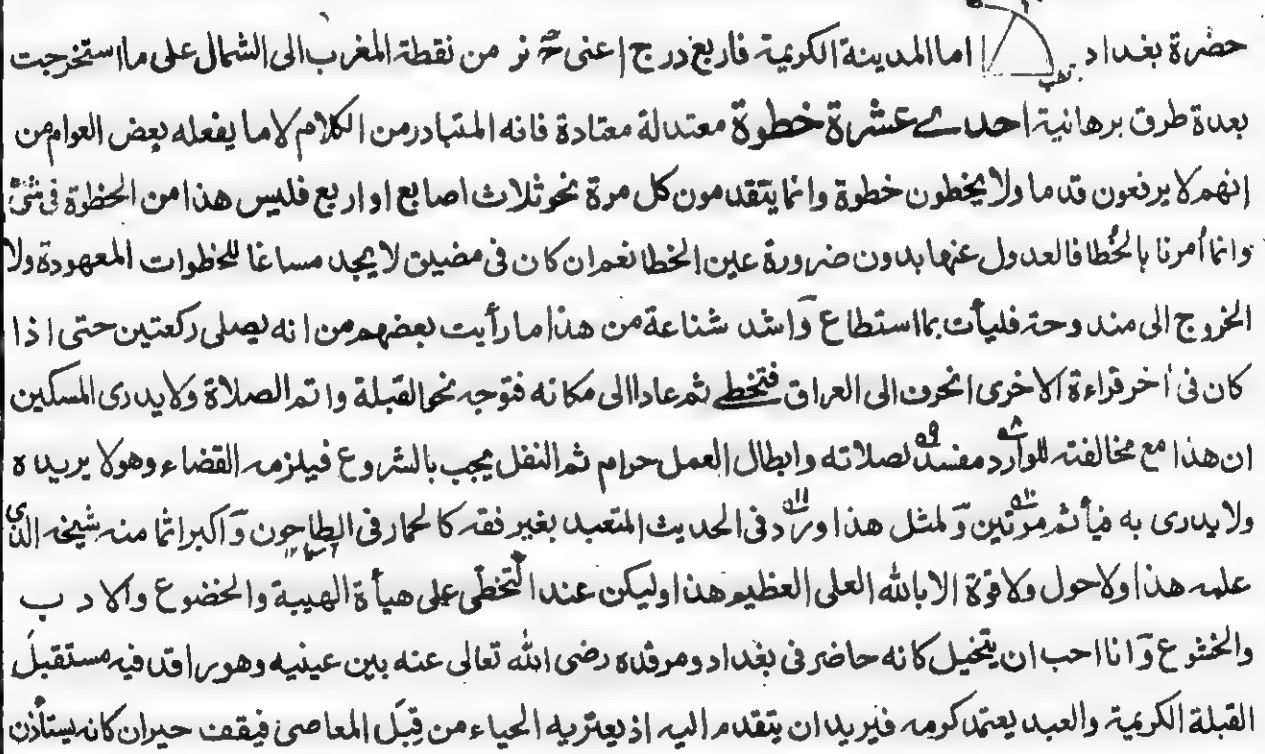 حضرة بغداد اما المدينة الكريمة فاربع درج اعنى حَ نو من نقطة المغرب الى الشمال على ما استخرجت
بعدة طرق برهانية احدے عشرة خطوة معتدلة معتادة فانه المتبادر من الكلام لا ما يفعله بعض العوام من
انهم لا يرفعون قدما ولا يخطون خطوة وانما يتقدمون كل مرة نحو ثلاث اصابع او اربع فليس هذا من الخطوة فى شئ
وانما أمرنا بالخُطا فالعدول عنها بدون ضرورة عين الخطا نعم ان كان فى مضيق لا يجد مساغا للخطوات المعهودة ولا
الخروج الى مندوحة فليأت بما استطاع وَاشد شناعة من هذا ما رأيت بعضهم من انه يصلى ركعتين حتى اذا
كان فى اٰخر قراءة الاخرى انحرف الى العراق فتخطے ثم عاد الى مكانه فتوجه نحو القبلة واتم الصلاة ولا يدرى المسكين
ان هذا مع مخالفته للوارد مفسد لصلاته وابطال العمل حرام ثم النفل يجب بالشروع فيلزمه القضاء وهو لا يريده
ولا يدرى به فيأثم مرتين وَلمثل هذا ورد فى الحديث المتعبد بغير فقه كالحمار فى الطاحون وَاكبر اثما منه شيخه الذي
علمه هذا ولا حول ولا قوة الا بالله العلى العظيم هذا وليكن عند التخطّى على هيأة الهيبة والخضوع والادب
والخشوع وَانا احب ان يتخيل كانه حاضر فى بغداد ومرقده رضى الله تعالى عنه بين عينيه وهو راقد فيه مستقبلَ
القبلة الكريمة والعبد يعتمد كرمه فيريد ان يتقدم اليه اذ يعتريه الحياء من قِبَل المعاصى فيقف حيران كانه يستأذن